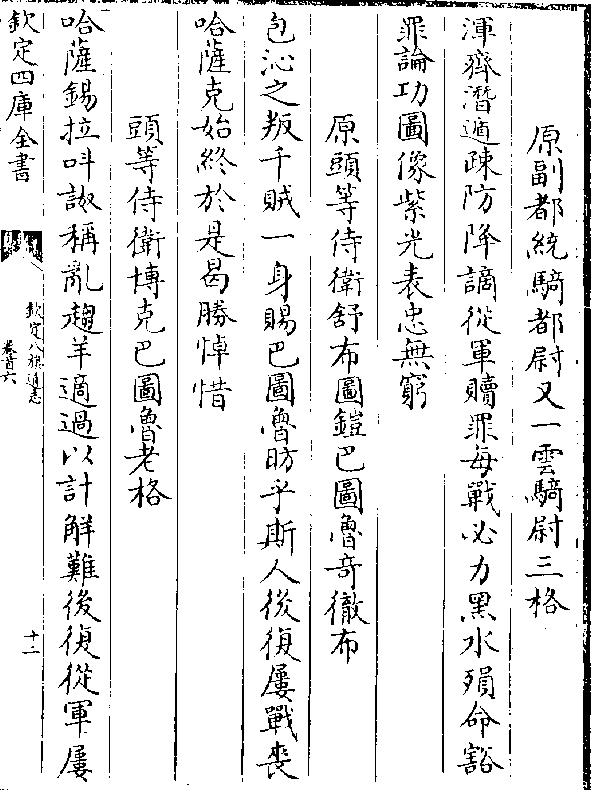 原副都統騎都尉又一雲騎尉三格
渾齊潛遁疎防降謫從軍贖罪每戰必力黑水殞命豁
罪論功圖像紫光表忠無窮
原頭等侍衛舒布圖鎧巴圖魯竒徹布
包沁之叛千賊一身賜巴圖魯昉乎斯人後復屢戰喪
哈薩克始終於是曷勝悼惜
頭等侍衛博克巴圖魯老格
哈薩錫拉呌諏稱亂趨羊適過以計解難後復從軍屢
欽定四庫全書
欽定八旗通志
卷首六
十二